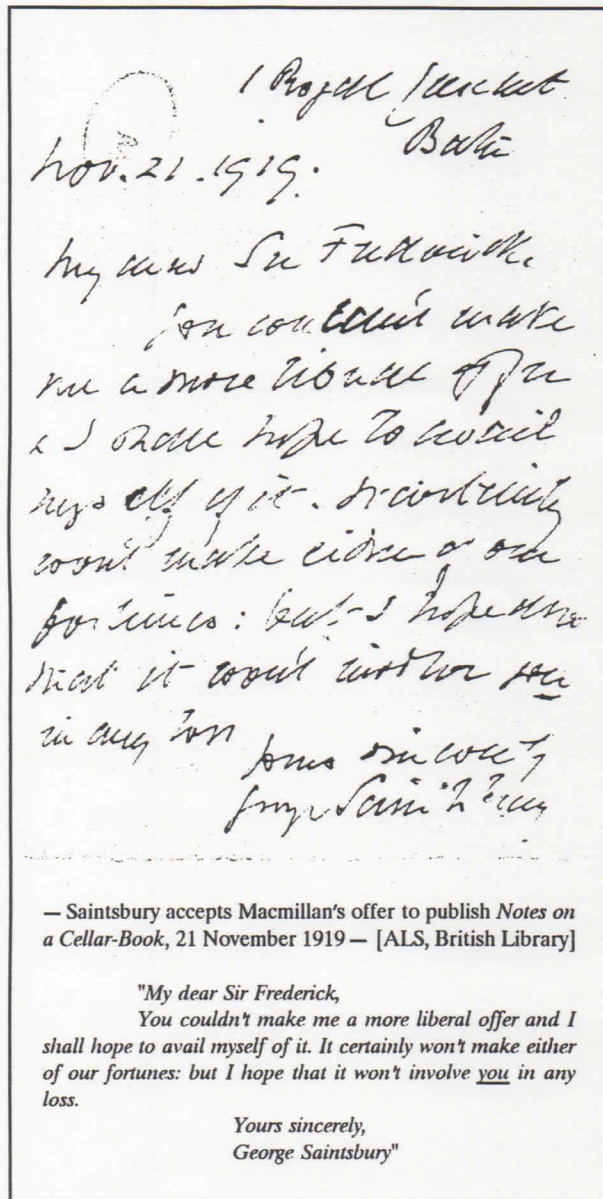 1 Royal Crescent
Bath
Nov. 21. 1919.
My dear Sir Frederick,
You couldn't make
me a more liberal offer
& I shall hope to avail
myself of it. It certainly
won't make either of our
fortunes: but I hope
that it won't involve you
in any loss
Yours sincerely
George Saintsbury
— Saintsbury accepts Macmillan's offer to publish Notes on
a Cellar-Book, 21 November 1919 — [ALS, British Library]
"My dear Sir Frederick,
You couldn't make me a more liberal offer and I
shall hope to avail myself of it. It certainly won't make either
of our fortunes: but I hope that it won't involve you in any
loss.
Yours sincerely,
George Saintsbury"